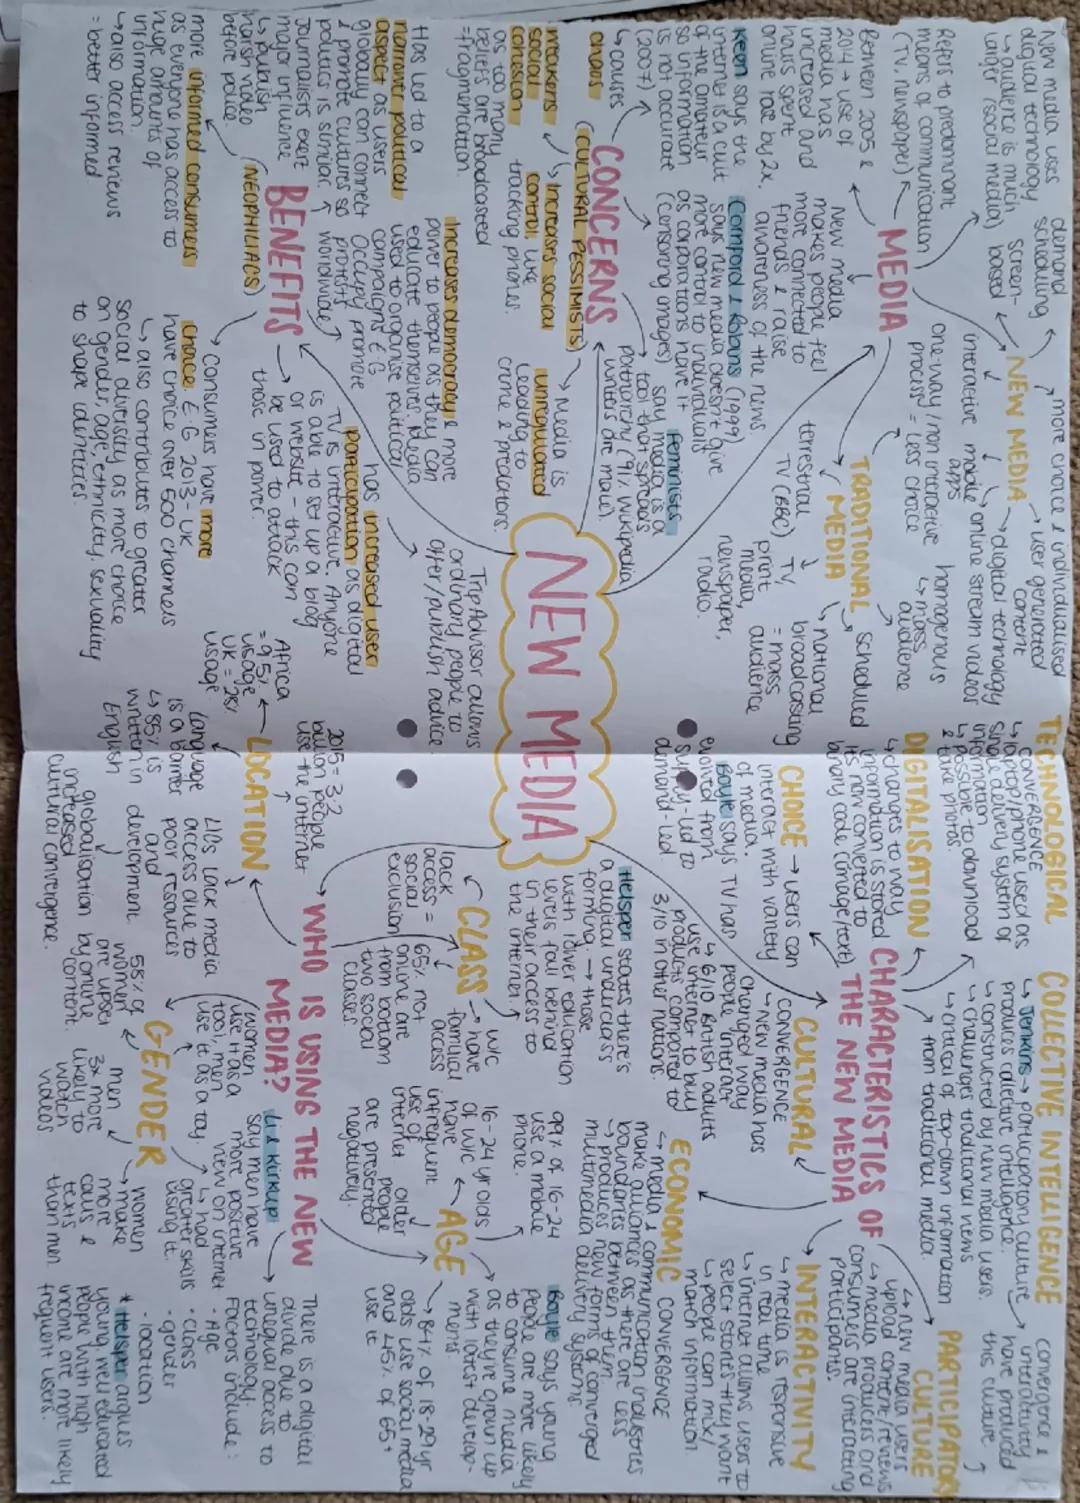 NEW MEDIA
MEDIA
Refers to predominant
means of communication
(TV, newspaper)
Between 2005 &
2014 → use of
media has
increased and
hours spent
online rose by 2x.
New media
makes people feel
more connected to
friends & raise
awareness of the news
NEW MEDIA
more choice & individualised
user generated
content
digital technology
online stream videos
interactive
mobile
apps
screen-
based
demand
scheduling
New media uses
digital technology
↳ audience is much
larger (social media)
TRADITIONAL
MEDIA
one-way/non interactive
process = less choice
homogenous
↳ mass
audience
scheduled
national
broadcasting
= mass
audience
TV, print
media,
newspaper,
radio.
terrestrial
TV (BBC)
CONCERNS
(CULTURAL PESSIMISTS)
Keen says the
internet is a cult
of the amateur
so information
is not accurate
(2007)
↳ causes
chaos
(1999)
says new media doesn't give
more control to individuals
as corporations have it
(censoring images)
Feminists
say media is a
tool that spreads
pornography (9% Wikipedia
writers are male).
weakens
social
cohesion
as too many
beliefs are broadcasted
= fragmentation.
Increases social
control like
tracking phones.
Media is
unregulated
leading to
crime & predators.
BENEFITS
(NEOPHILIACS)
Has led to a
narrower political
aspect as users
globally can connect
& promote cultures so
politics is similar
worldwide
Journalists exert
major influence
↳ publish
harsh video
before police
more informed consumers
as everyone has access to
huge amounts of
information.
↳ also access reviews
= better informed
Increases democracy & more
power to people as they can
educate themselves. Media
used to organise political
campaigns E.G
Occupy promote
protest
has increased user
participation as digital
TV is interactive. Anyone
is able to set up a blog
or website - this can
be used to attack
those in power.
TripAdvisor allows
ordinary people to
offer/publish advice
Consumers have more
choice. E.G 2013 - UK
have choice over 500 channels
↳ also contributes to greater
social diversity as more choice
on gender, age, ethnicity, sexuality
to shape identities.
CHARACTERISTICS OF
THE NEW MEDIA
TECHNOLOGICAL
CONVERGENCE
↳ laptop/phone used as
single delivery system of
information
↳ possible to download
& take photos
DIGITALISATION
↳ changes to way
information is stored
its now converted to
binary code (image/text)
CHOICE → users can
interact with variety
of media.
Boyle says TV has
evolved from
supply-led to
demand-led
CULTURAL
CONVERGENCE
↳ New media has
changed way
people interact
↳ 6/10 British adults
use internet to buy
products compared to
3/10 in other nations.
ECONOMIC CONVERGENCE
↳ media & communication industries
make alliances as there are less
boundaries between them.
↳ produces new forms of converged
multimedia delivery systems
INTERACTIVITY
↳ media is responsive
in real time
↳ internet allows users to
select stories they want
↳ people can mix/
match information.
COLLECTIVE INTELLIGENCE
↳ Jenkins → participatory culture
produces collective intelligence.
↳ constructed by new media users.
↳ challenges traditional news
↳ critical of top-down information
from traditional media.
PARTICIPATORY
CULTURE
convergence &
interactivity
have produced
this culture
↳ new media users
upload content/reviews
↳ media producers and
consumers are interacting
participants.
WHO IS USING THE NEW
MEDIA?
There is a digital
divide due to
unequal access to
technology.
Factors include:
- Age
- class
- gender
- location
* Helsper argues
young, well educated
people with high
income are more likely
frequent users.
CLASS
W/C
have
familial
access
lack
access =
social
exclusion
65% not
online are
from bottom
two social
classes.
Helsper states there's
a digital underclass
forming → those
with lower education
levels fall behind
in their access to
the internet.
AGE
16-24 yr olds
of W/C
have
infrequent
use of
internet
99% of 16-24
use a mobile
phone.
Boyle says young
people are more likely
to consume media
as they've grown up
with latest develop-
ments.
84% of 18-29 yr
olds use social media
and <45% of 65+
use it
older
people
are presented
negatively.
GENDER
Li & Kirkup
say men have
more positive
view on internet
↳ had
greater skills
using it.
(women
use it as a
tool, men
use it as a toy.
58% of
women
are upset
by online
content.
men
3x more
likely to
watch
videos
women
make
more
calls &
texts
than men.
LOCATION
2015 = 3.2
billion people
use the internet
Africa
= 9.5%
usage
UK = 28%
usage
Language
is a barrier
↳ 85% is
written in
English
LICs lack media
access due to
poor resources
and
development.
globalisation
increased
cultural convergence.